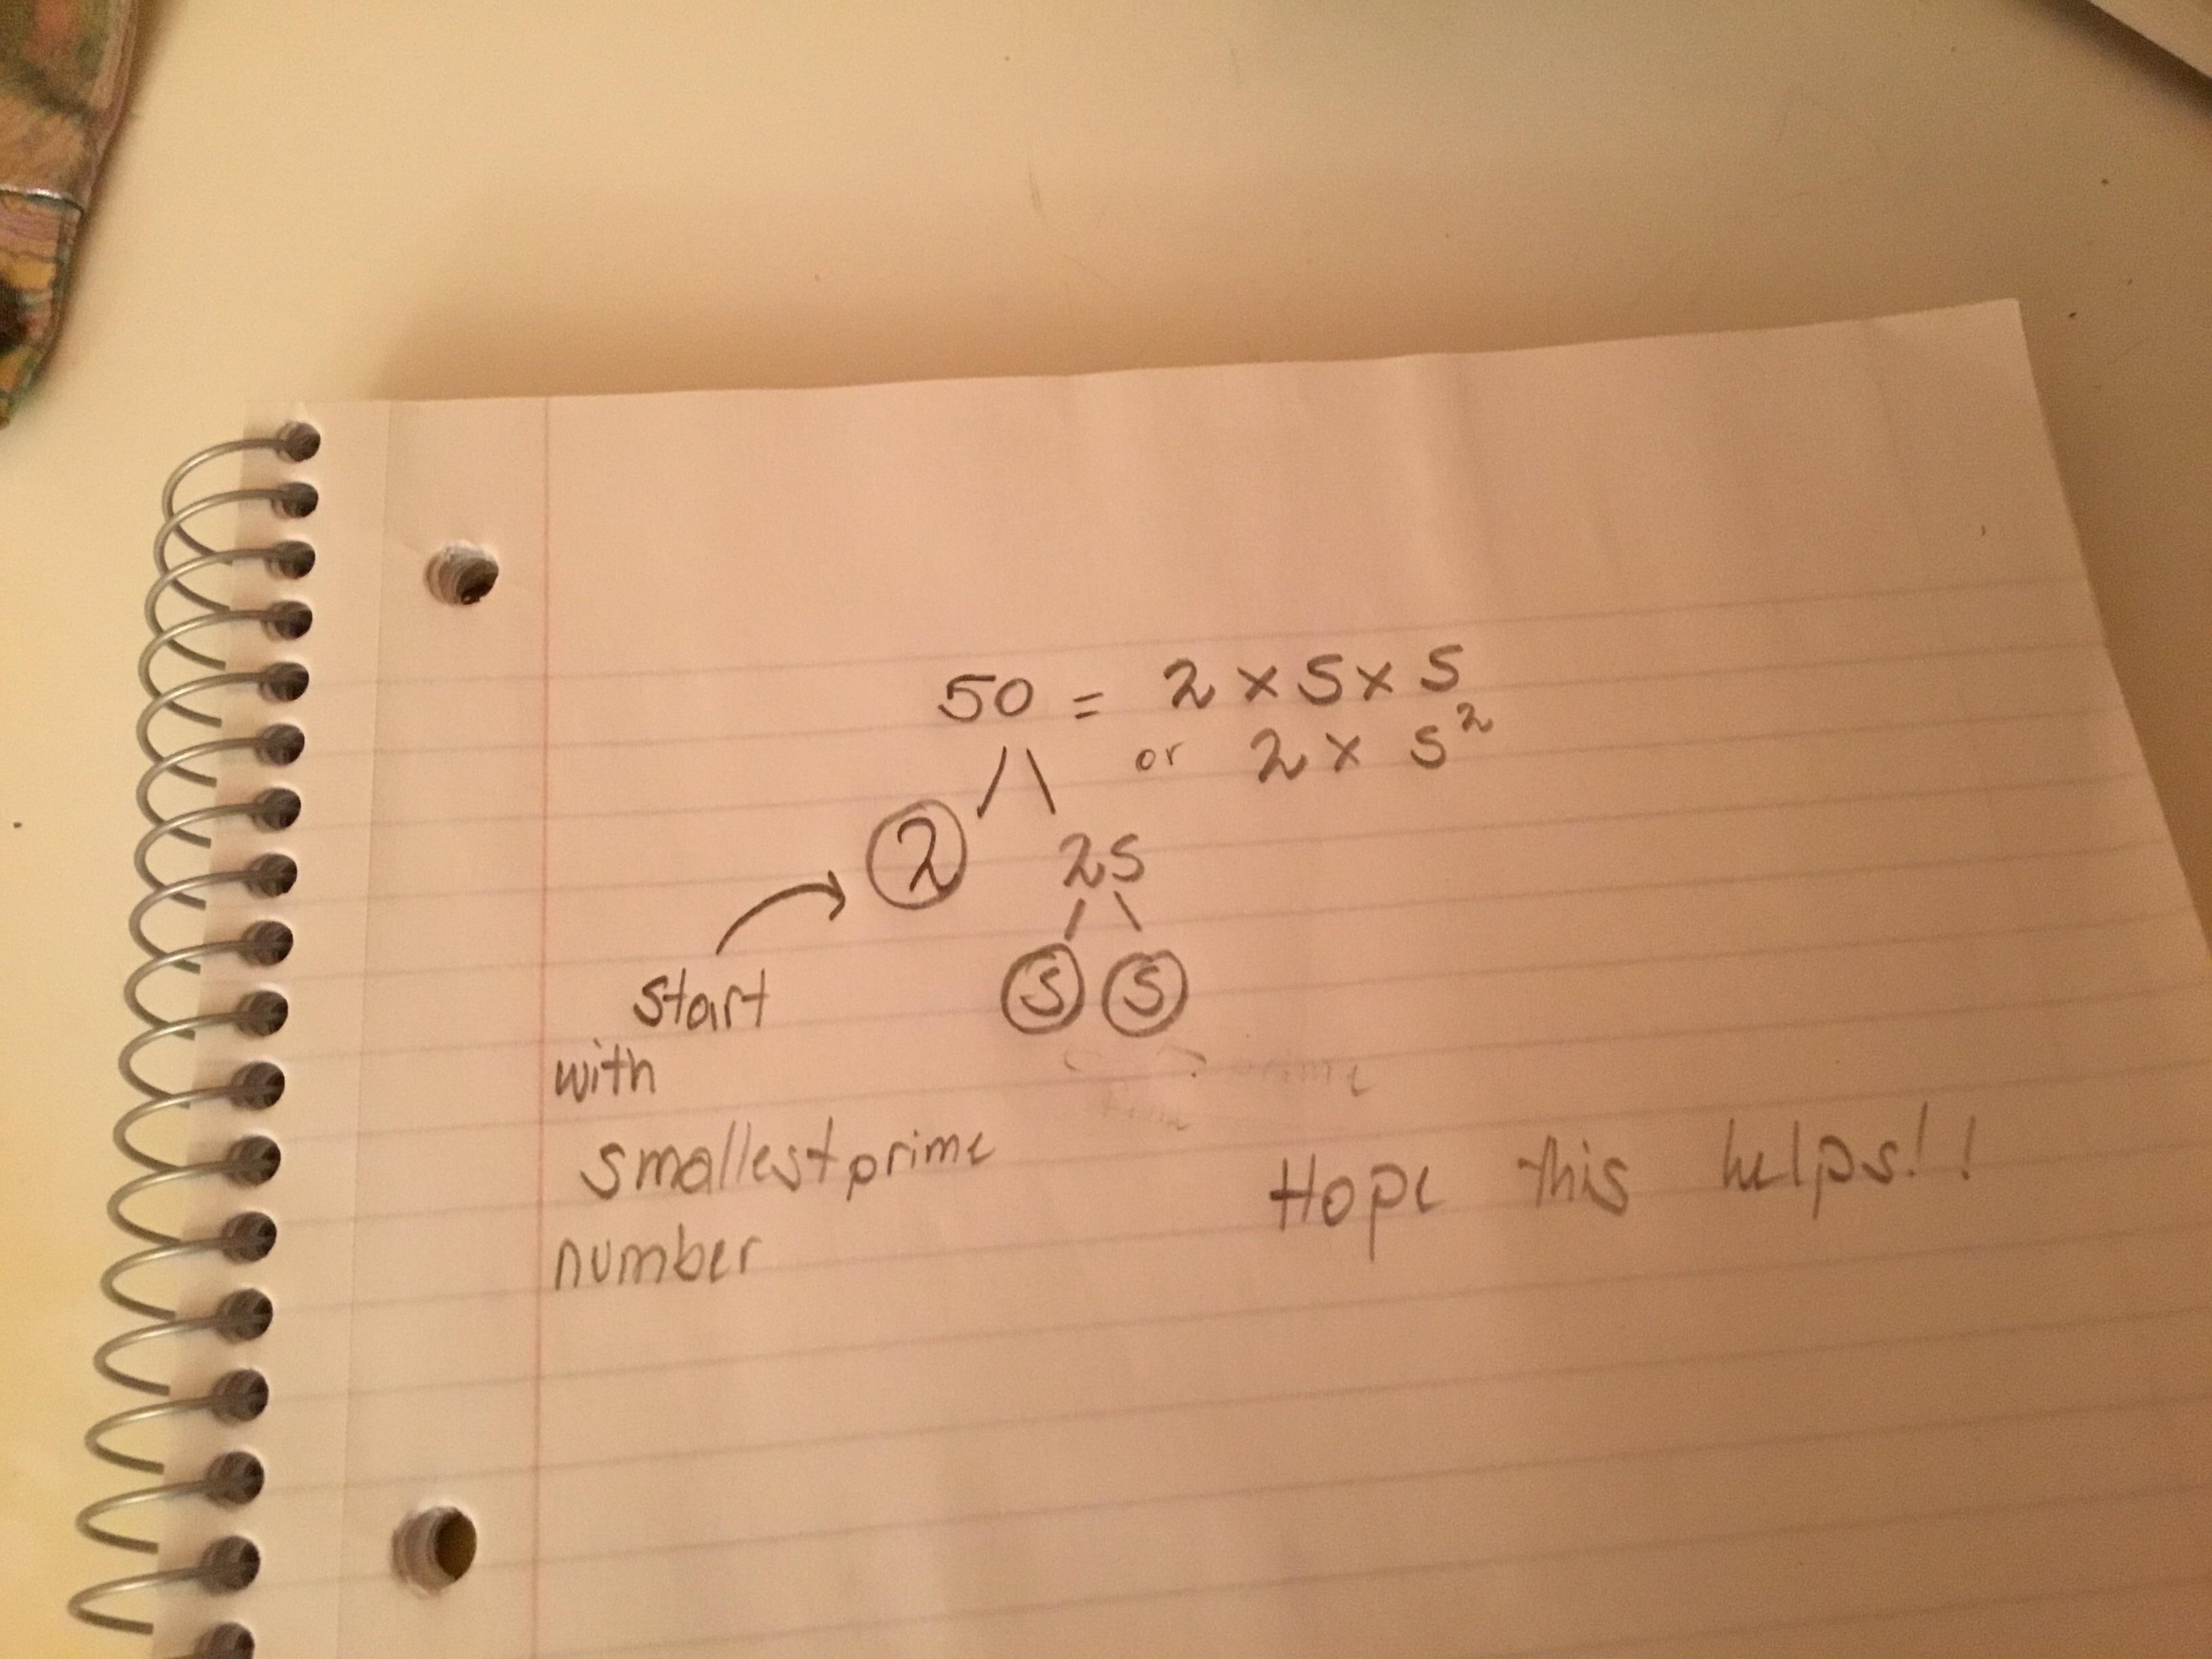 50 = 2 x 5 x 5
or 2 x 5²
2 25
5 5
start
with
smallest prime
number
prime
Hope this helps!!